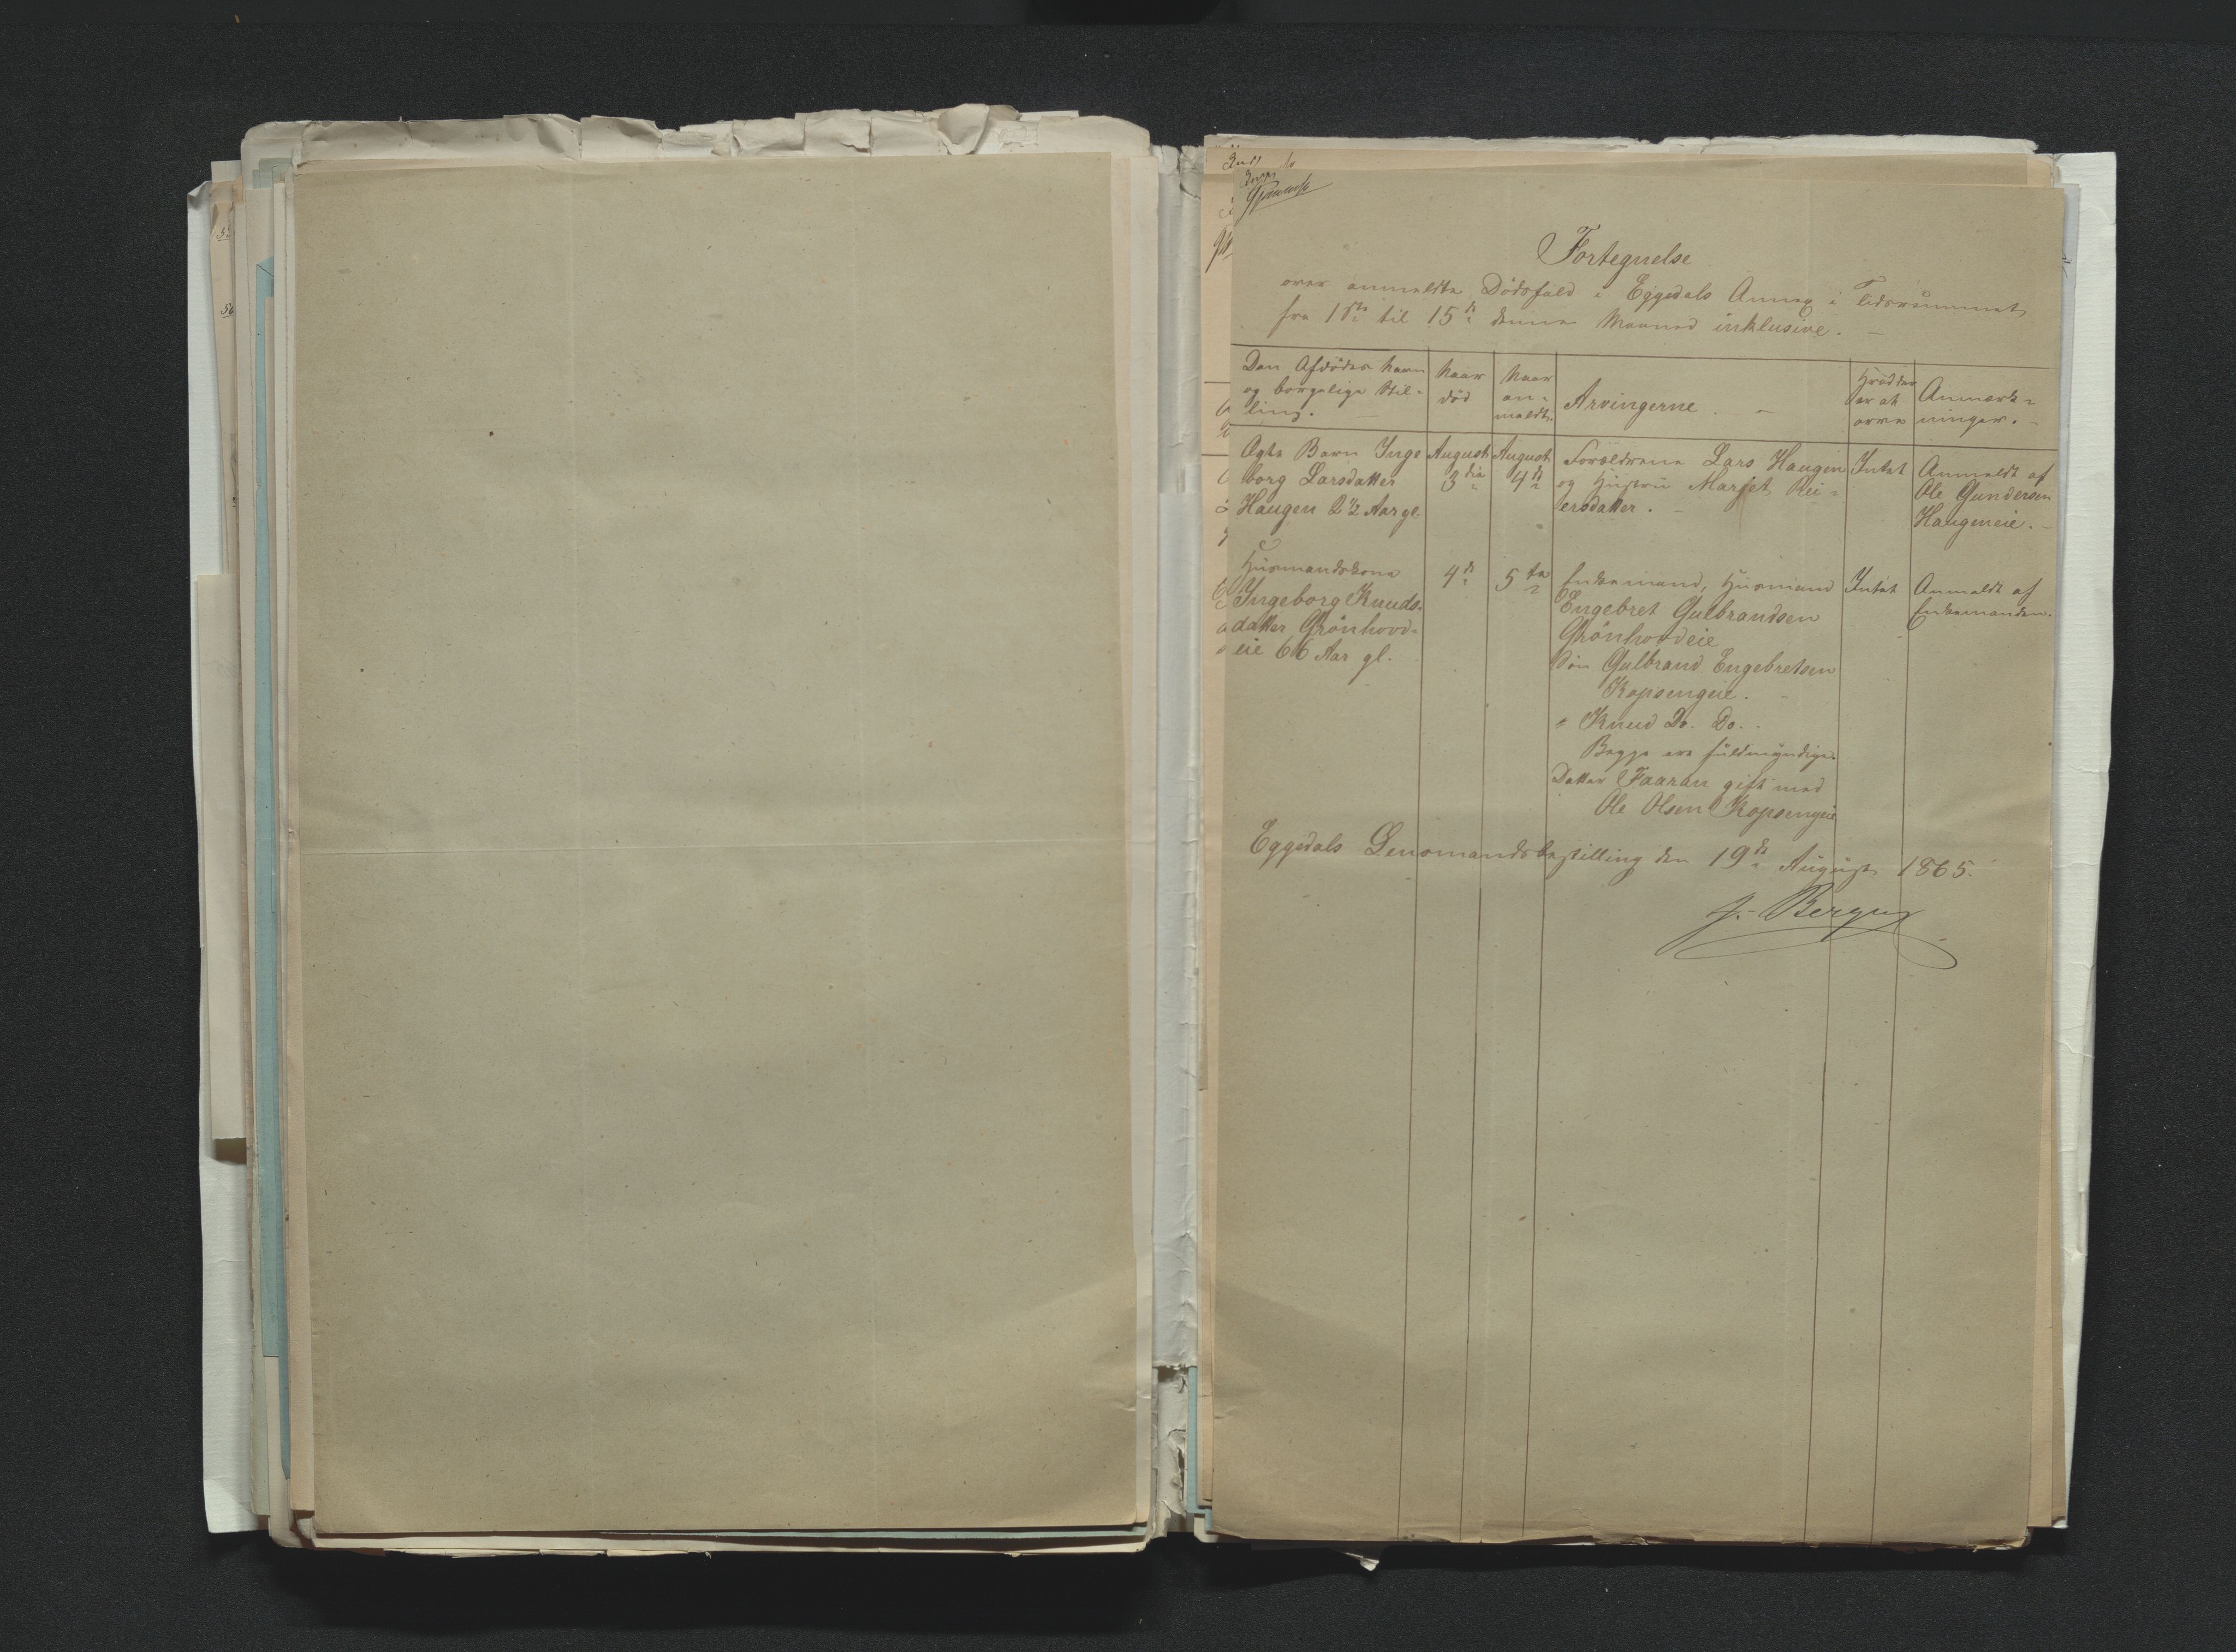 Fortegnelse
over anmeldte Dödsfald i Eggedals Annex i Tidsrummet
fra 1ste til 15de denne Maaned inklusive. —
Den Afdödes Navn og borgelige Stil=ling. —
Naar död
Naar an=meldt.
Arvingerne. —
Hvad der er at arve
Anmærk=ninger. —
Ægte Barn Inge
borg Larsdatter
Haugen 2 1/2 Aar gl.
August
3die
August
4de
Forældrene Lars Haugen
og Hustru Marget Rei=
ersdatter. —
Intet
Anmeldt af
Ole Gundersen
Haugeneie. —
Huusmandskone
Ingeborg Knuds=
datter Grönhovd=
eie 66 Aar gl.
4de
5te
Enkemand, Huusmand
Engebret Gulbrandsen
Grönhovdeie
Sön Gulbrand Engebretsen
Kopsengeie. —
" Knud Do. Do. .
Begge ere fuldmyndige.
Datter Faaran gift med
Ole Olsen Kopsengeie
Intet
Anmeldt af
Enkemanden.
Eggedals Lensmandsbestilling den 19de August 1865.
J. Bergu